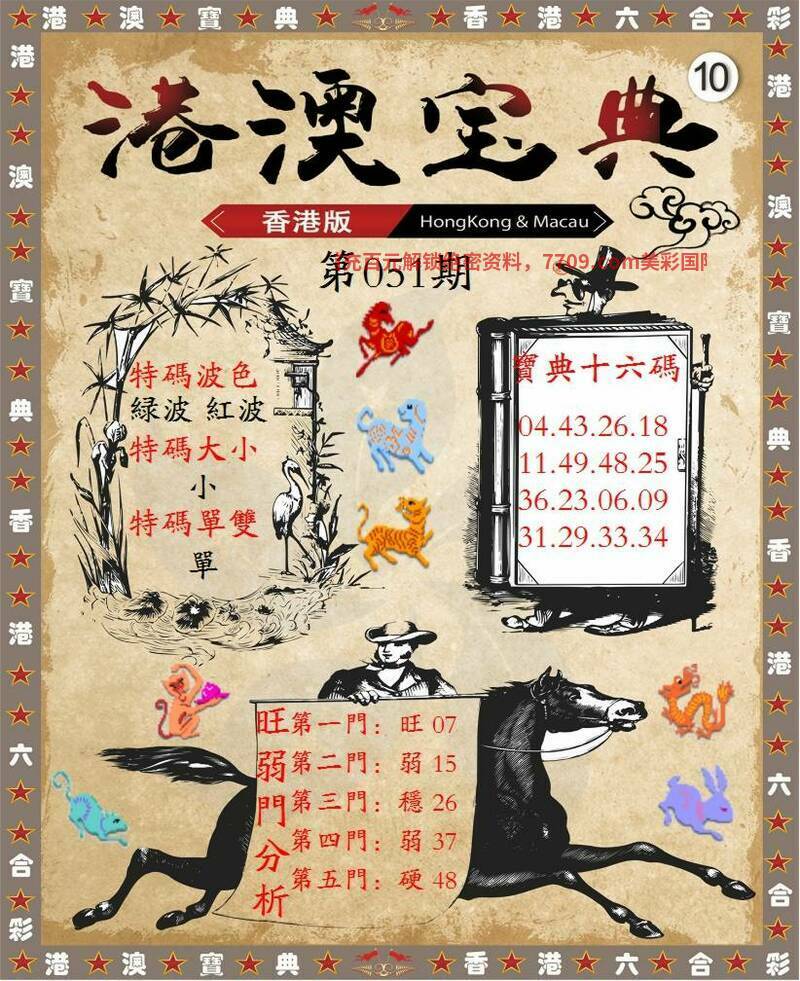 港澳寶典 香港六合彩
10
港澳宝典
香港版 HongKong & Macau
充百元解锁 密资料，7709.com美彩国
第051期
特碼波色
緑波 紅波
特碼大小
小
特碼單雙
單
寶典十六碼
04.43.26.18
11.49.48.25
36.23.06.09
31.29.33.34
旺弱門分析
第一門：旺 07
第二門：弱 15
第三門：穩 26
第四門：弱 37
第五門：硬 48
港澳寶典香港六合彩
港澳寶典香港六合彩
港澳寶典 香港六合彩